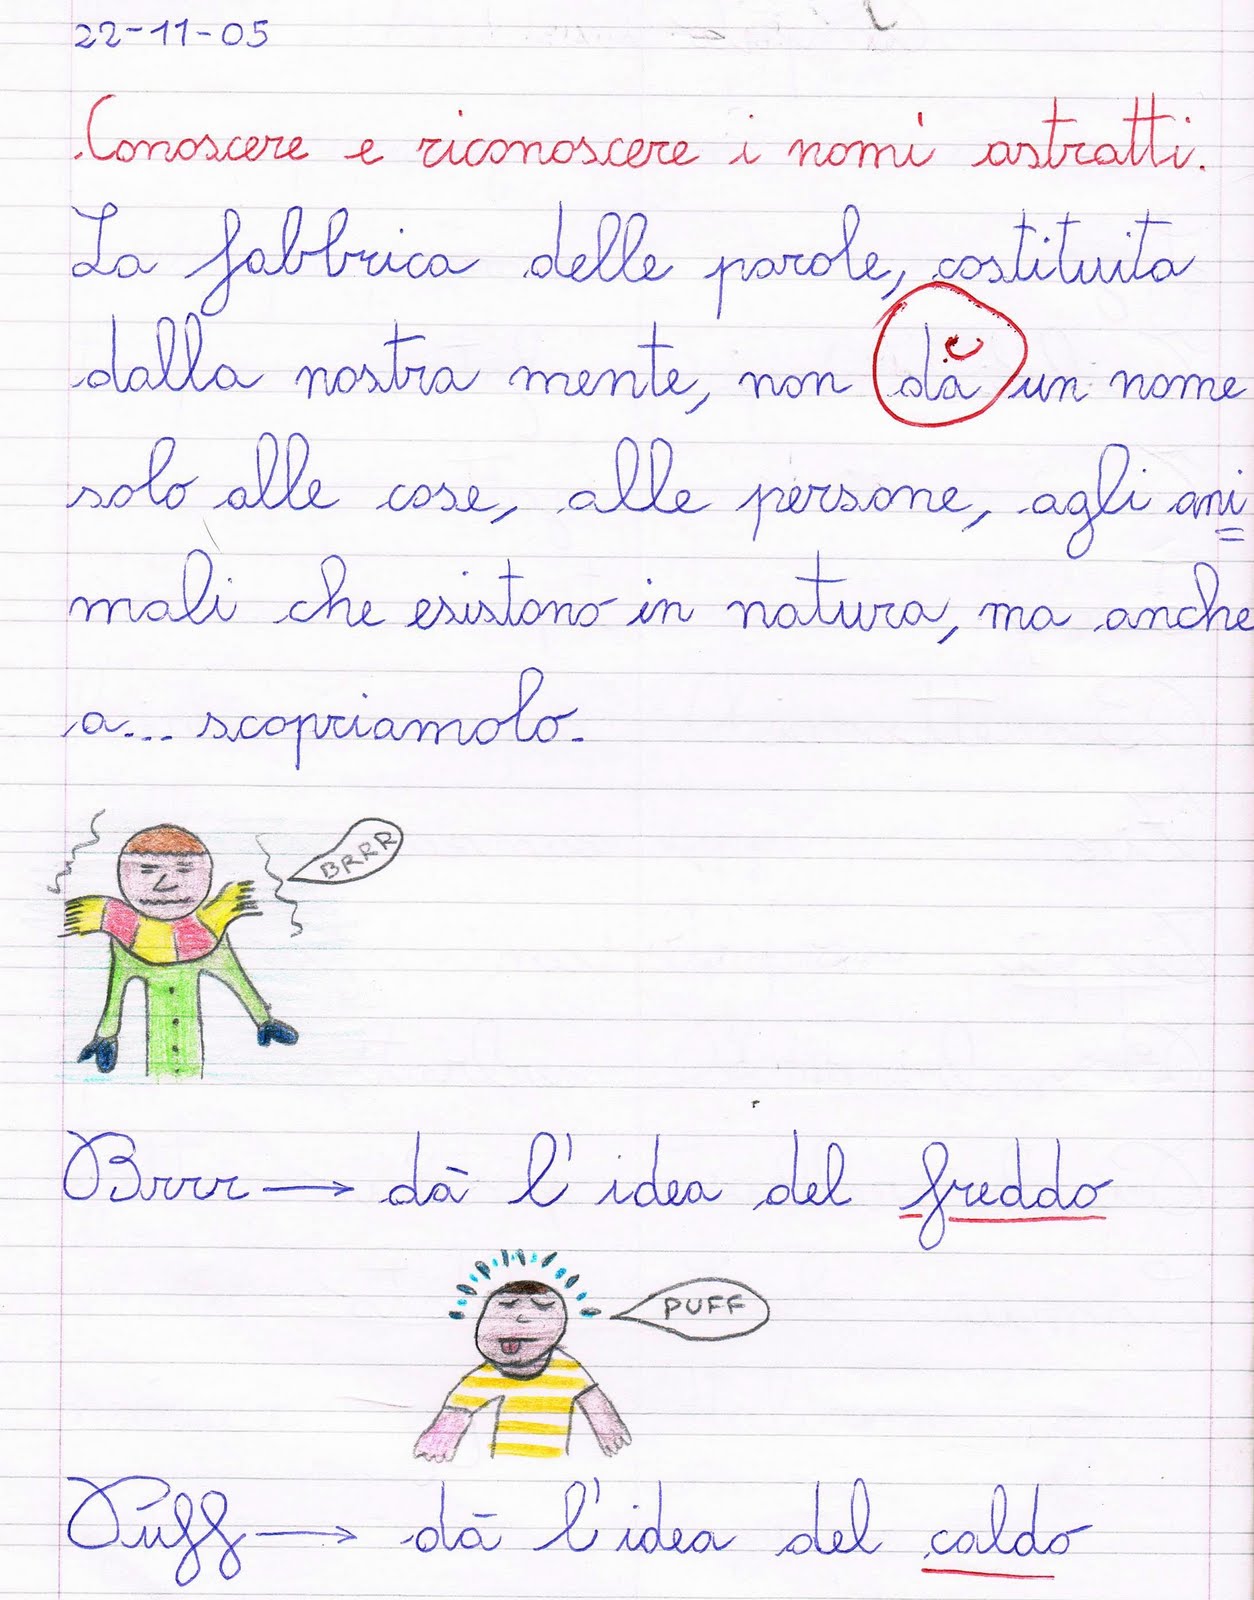 22-11-05
Conoscere e riconoscere i nomi astratti.
La fabbrica delle parole, costituita
dalla nostra mente, non dà un nome
solo alle cose, alle persone, agli ani
mali che esistono in natura, ma anche
a... scopriamolo.
BRRR
Brrr → dà l'idea del freddo
PUFF
Puff → dà l'idea del caldo